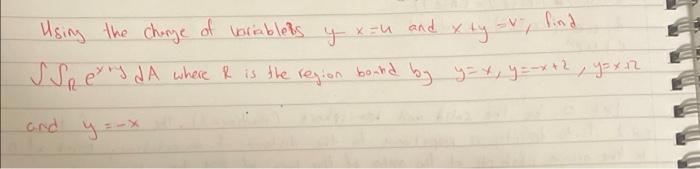 Using the change of variables y-x=u and x+y=v, find
∫∫_R e^{x+y} dA where R is the region bound by y=x, y=-x+2, y=x+2
and y=-x